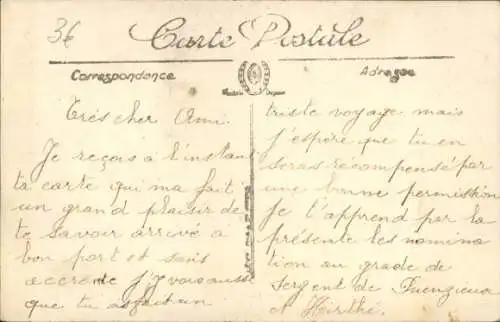 36
Carte Postale
Correspondance
Adresse
Très cher Ami.
Je reçois à l'instant
ta carte qui ma fait
un grand plaisir de
te savoir arrivé à
bon port et sans
accrocs j'y vois aussi
que tu as fait un
triste voyage mais
j'espère que tu en
seras récompensé par
une bonne permission
je t'apprend par la
présente les nomina
tion au grade de
Sergent de
et